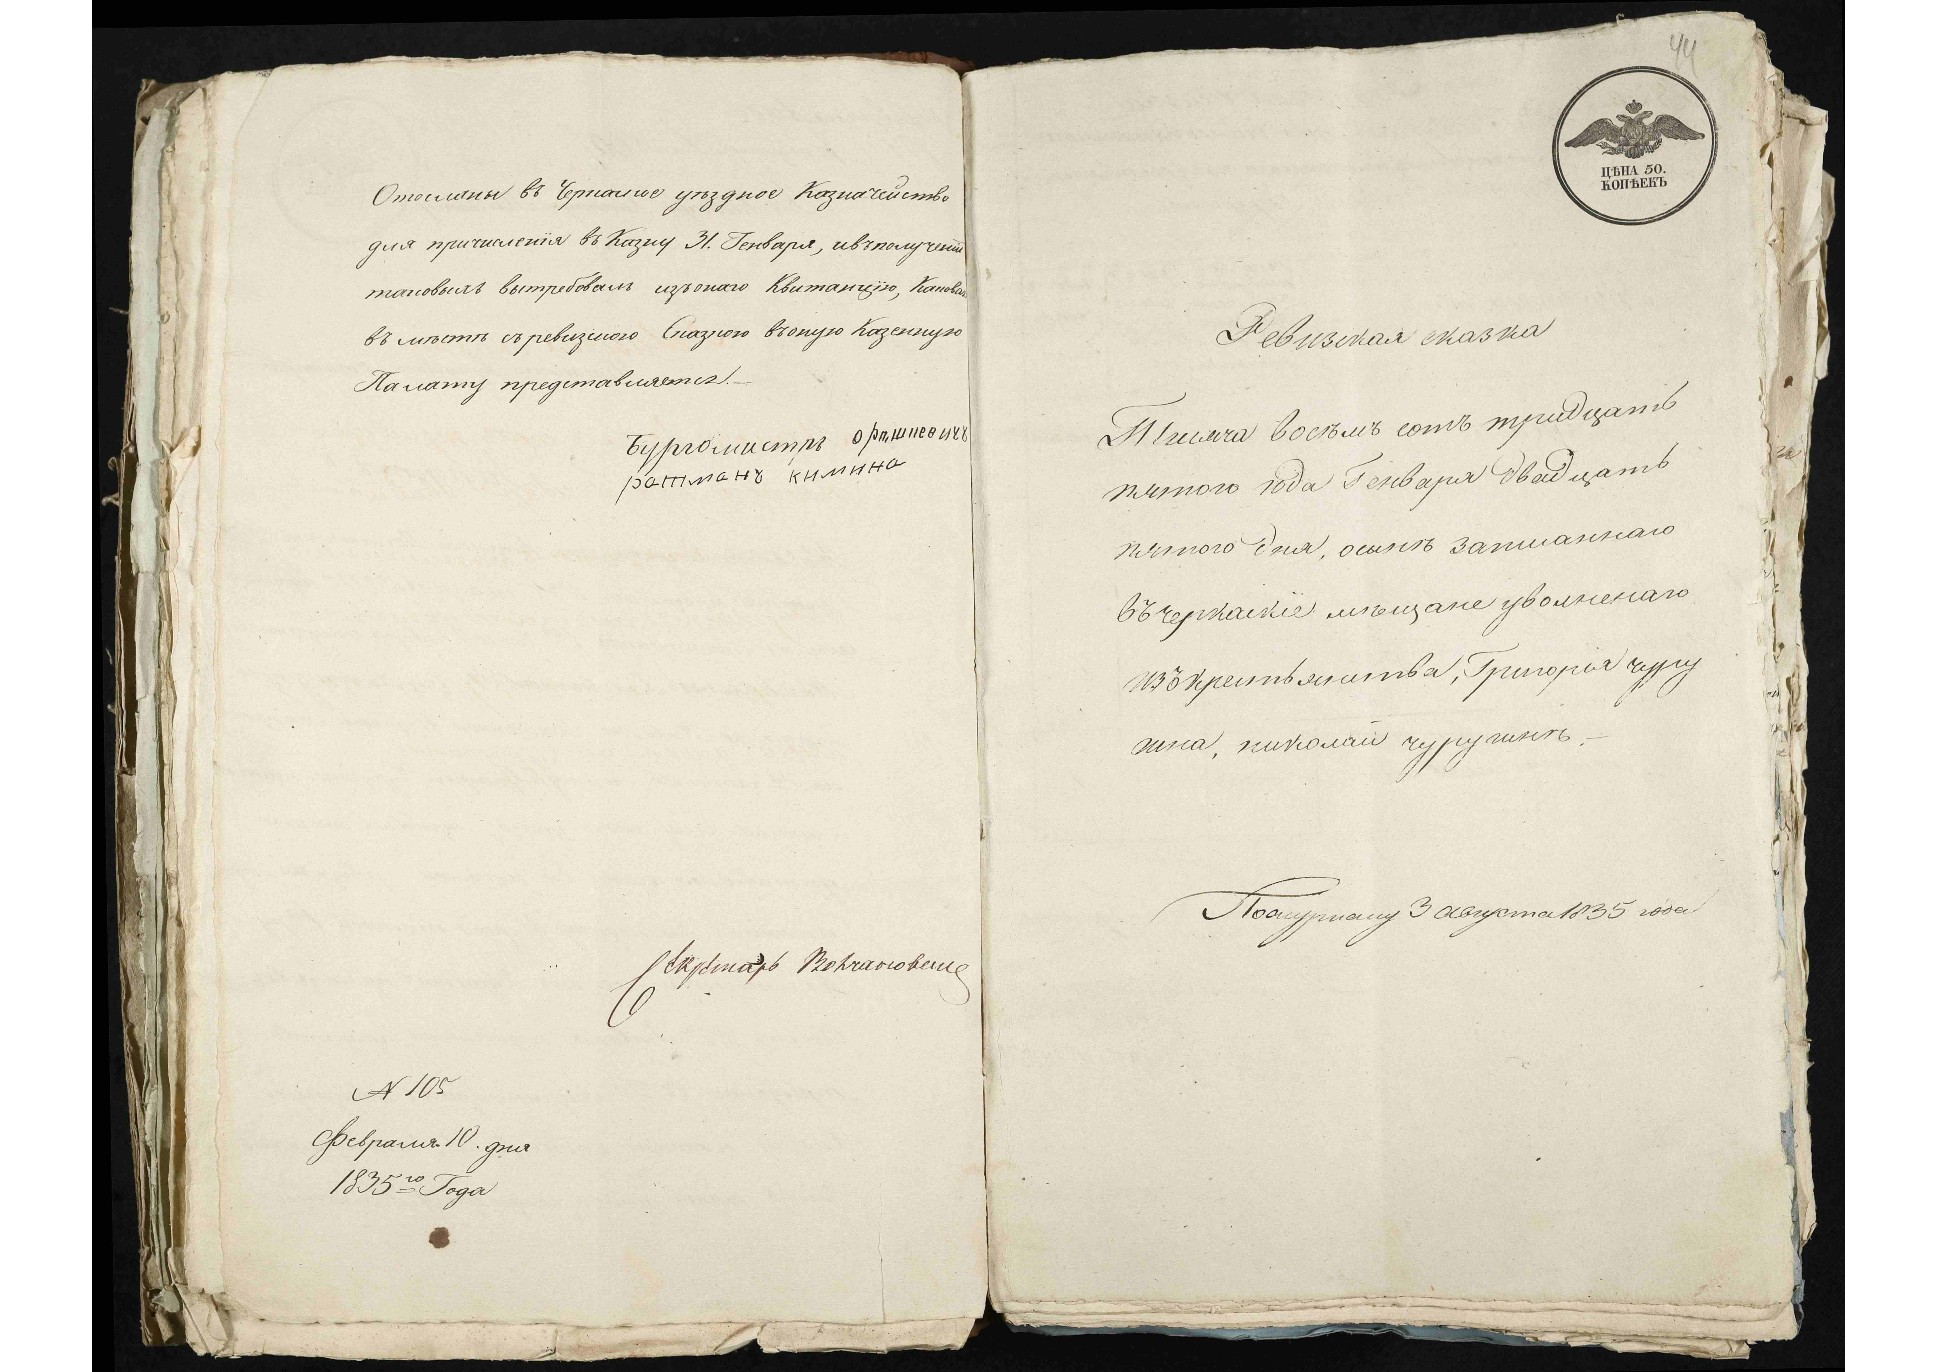 Отосланы въ Черкаское уѣздное Казначейство
для причисленія въ Казну 31. Генваря, и въ полученіи
таковыхъ вытребовалъ изъ онаго Квитанцію, Каковая
въ мѣстѣ съ ревизскою Сказкою въ оную Казенную
Палату представляется.—
Бургомистръ
ратманъ кимина
Секретарь
N 105
Февраля 10. дня
1835го Года
44
ЦѢНА 50.
КОПѢЕКЪ
Ревизская сказка
Тысяча восѣмъ сотъ тридцать
пятого года Генваря двадцать
пятого дня, осынѣ записаннаго
въ черкаскіе мѣщане уволненаго
изъ крестьянства, Григорія чуру
пина, николай чурупинъ.—
3 августа 1835 года